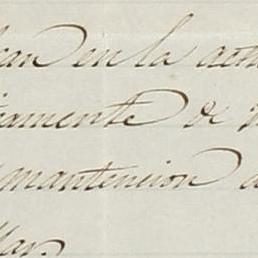 can en la actu
iamente de
mantencion d
llar.